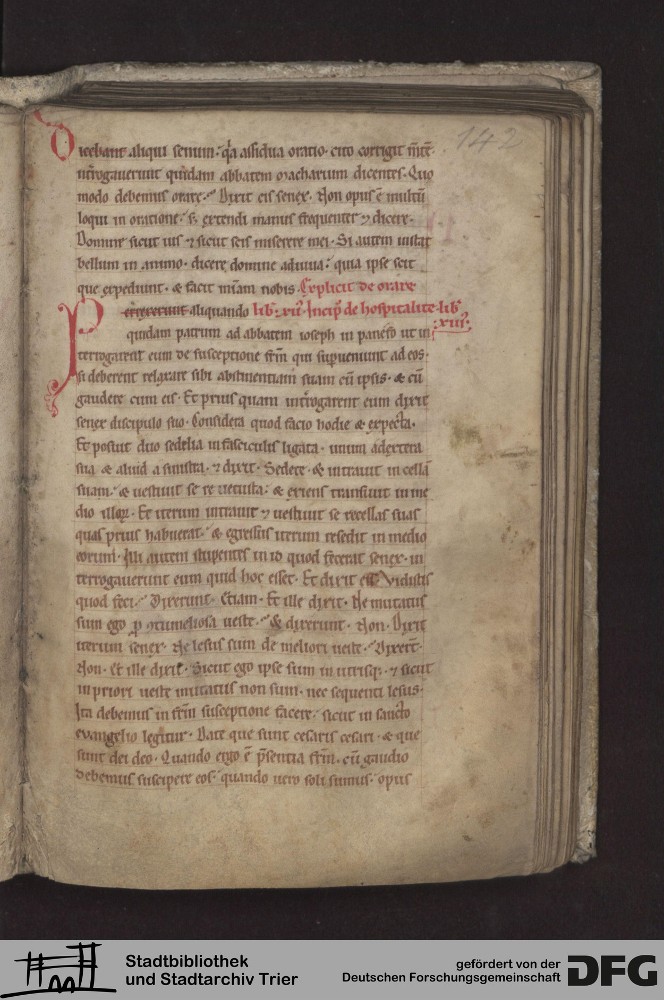 142
Dicebant aliqui senum· qa assidua oratio· cito corrigit mtē·
Introgaverunt quidam abbatem macharium dicentes· Quo
modo debemus orare· Dixit eis senex· Non opus ē multū
loqui in oratione· s· extendi manus frequenter ⁊ dicere·
Domine sicut uis ⁊ sicut scis miserere mei· Si autem instat
bellum in animo· dicere domine adiuua· quia ipse scit
que expediunt· & facit mīam nobis· Explicit de orare
Perrexerunt aliquando lib· xiiꝰ· Incip̄ de hospitalite lib·
xiiiꝰ·
quidam patrum ad abbatem ioseph in panefo ut in
terrogarent eum de susceptione frm̄ qui supueniunt ad eos·
si deberent relaxare sibi abstinentiam suam cū ipsis· & cū
gaudere cum eis· Et prius quam introgarent eum dixit
senex discipulo suo· Considera quod facio hodie & expecta·
Et posuit duo sedelia in fasciculis ligata· unum ad extera
sua & aliud a sinistra· ⁊ dixit· Sedete· & intrauit in cellā
suam· & uestiuit se re uetusta· & exiens transiuit in me
dio illoꝝ· Et iterum intrauit ⁊ uestiuit se recellas suas
quas prius habuerat· & egressus iterum resedit in medio
eorum· Illi autem stupentes in id quod fecerat senex· in
terrogauerunt eum quid hoc esset· Et dixit eis Vidistis
quod feci· Dixerunt· Etiam· Et ille dixit· Ne mutatus
sum ego p̱ ꝯtumeliosa ueste· & dixerunt· Non· Dixit
iterum senex· Ne lesus sum de meliori ueste· Dixert̄·
Non· Et ille dixit· Sicut ego ipse sum in utrisq;· ⁊ sicut
in priori ueste mutatus non sum· nec sequenti lesus·
Ita debemus in frm̄ susceptione facere· sicut in sancto
evangelio legitur· Date que sunt cesaris cesari· & que
sunt dei deo· Quando ergo ē p̄sentia frm̄· cū gaudio
debemus suscipere eos· quando uero soli sumus· opus
Stadtbibliothek
und Stadtarchiv Trier
gefördert von der
Deutschen Forschungsgemeinschaft
DFG